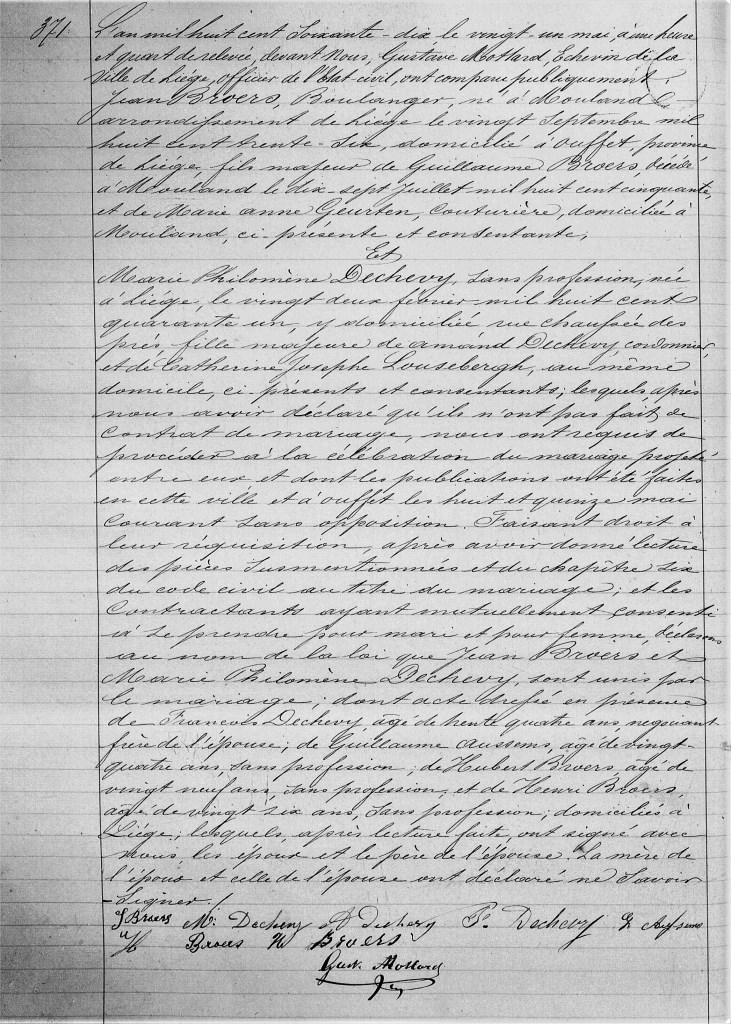 371.
L'an mil huit cent soixante-dix le vingt-un mai, à une heure
et quart de relevée, devant Nous, Gustave Mottard, Echevin de la
Ville de Liége, officier de l'État-civil, ont comparu publiquement
Jean Broers, Boulanger, né à Mouland
arrondissement de Liége le vingt Septembre mil
huit cent trente-six, domicilié à Ouffet, province
de Liége, fils majeur de Guillaume Broers, décédé
à Mouland le dix-sept Juillet mil huit cent cinquante,
et de Marie anne Geurten, Couturière, domiciliée à
Mouland, ci-présente et consentante;
Et
Marie Philomène Dechevy, sans profession, née
à Liége, le vingt deux février mil huit cent
quarante un, y domiciliée rue chaussée des
prés, fille majeure de amand Dechevy, cordonnier,
et de Catherine Josephe Lousebergh, au même
domicile, ci-présents et consentants; lesquels après
nous avoir déclaré qu'ils n'ont pas fait de
contrat de mariage, nous ont requis de
procéder à la célébration du mariage projeté
entre eux et dont les publications ont été faites
en cette ville et à Ouffet les huit et quinze mai
courant sans opposition. Faisant droit à
leur réquisition, après avoir donné lecture
des pièces susmentionnées et du chapître six
du code civil au titre du mariage; et les
contractants ayant mutuellement consenti
à se prendre pour mari et pour femme, déclarons
au nom de la loi que Jean Broers et
Marie Philomène Dechevy, sont unis par
le mariage; dont acte dressé en présence
de François Dechevy âgé de trente quatre ans, négociant
frère de l'épouse; de Guillaume Aussems, âgé de vingt-
quatre ans, sans profession; de Hubert Broers, âgé de
vingt neuf ans, sans profession, et de Henri Broers,
âgé de vingt six ans, sans profession; domiciliés à
Liége; lesquels, après lecture faite, ont signé avec
nous, les époux et le père de l'épouse. La mère de
l'époux et celle de l'épouse ont déclaré ne savoir
signer./
J Broers M. Dechevy A Dechevy F. Dechevy G Aussems
H Broers H Broers
Gust. Mottard